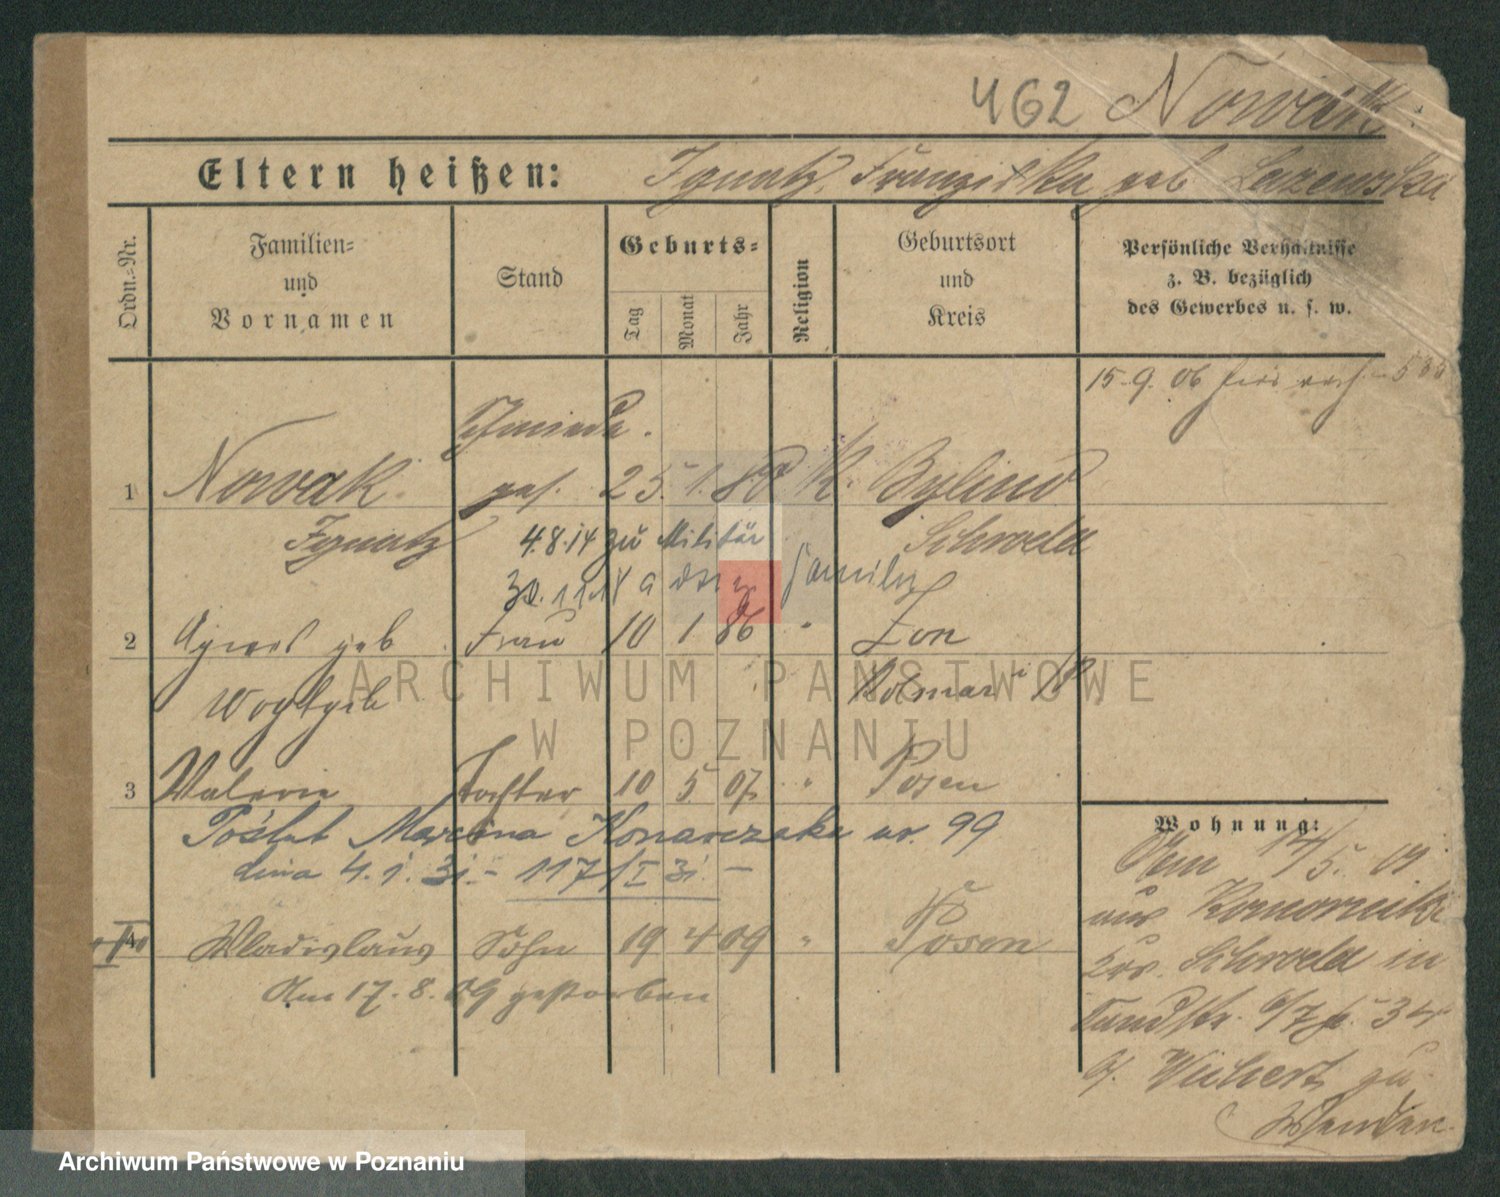 462 Nowak.
Eltern heißen: Ignatz, Franziska geb Lazewska
Ordn.=Nr.
Familien=
und
Vornamen
Stand
Geburts=
Tag
Monat
Jahr
Religion
Geburtsort
und
Kreis
Persönliche Verhältnisse
z. B. bezüglich
des Gewerbes u. s. w.
15.9.06
Schmiede
1 Nowak ges. 25. 1. 80 K. Bylin
Ignatz Schroda
4.8.14 zu Militär
Familie
2 Agnes geb Frau 10 1 86 " Zon
Kolmar i/P
3 Valerie Tochter 10 5 07 " Posen
Poślub Marcina Konarczaka nr. 99
dnia 4.1.31. - 117/I 31. -
4 Wladislaus Sohn 19 4 09 " Posen
Am 17.8.09 gestorben
Wohnung:
14/5. 09
aus Komornik
Krs. Schroda in
Sandstr. 6/7
ARCHIWUM PAŃSTWOWE
W POZNANIU
Archiwum Państwowe w Poznaniu